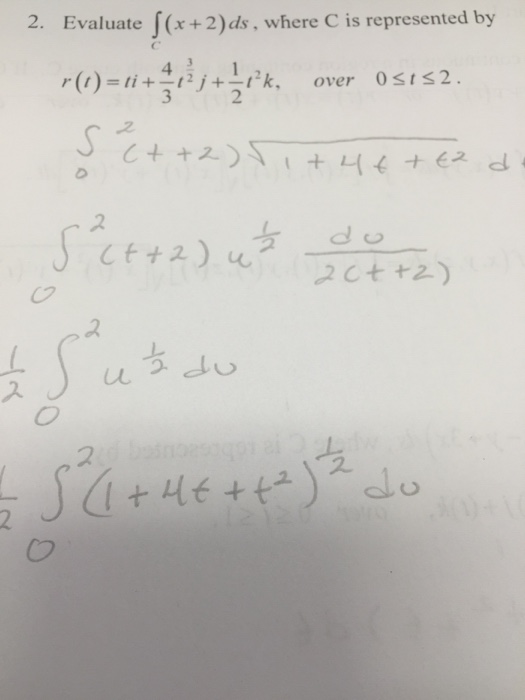 2. Evaluate ∫(x+2)ds, where C is represented by
C
r(t) = ti + 4/3 t^(3/2) j + 1/2 t²k, over 0≤t≤2.
∫₀² (t+2)√(1+4t+t²) d
∫₀² (t+2) u^(1/2) du/(2(t+2))
1/2 ∫₀² u^(1/2) du
1/2 ∫₀² (1+4t+t²)^(1/2) du